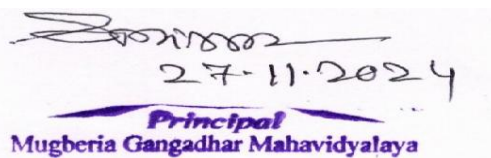 27.11.2024
Principal
Mugberia Gangadhar Mahavidyalaya